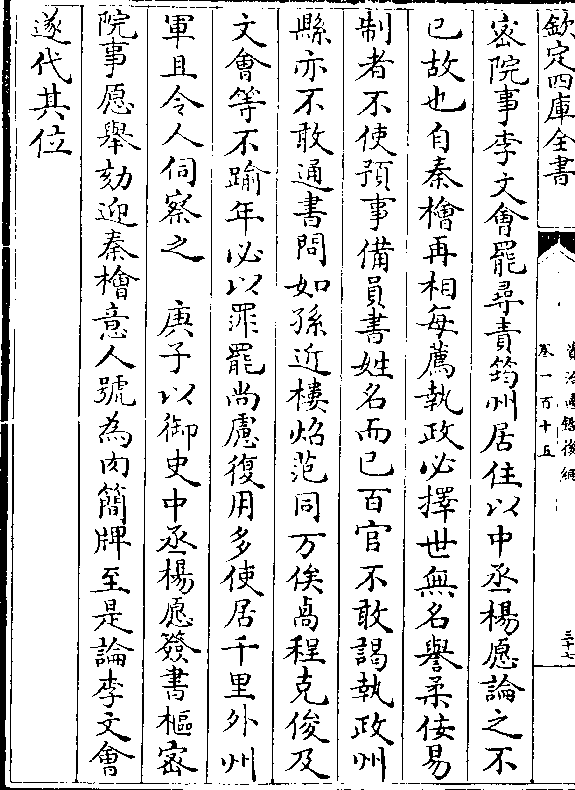 欽定四庫全書
資治通鑑後編
卷一百十五
三十七
密院事李文會罷尋責筠州居住以中丞楊愿論之不
已故也自秦檜再相每薦執政必擇世無名譽柔佞易
制者不使預事備員書姓名而已百官不敢謁執政州
縣亦不敢通書問如孫近樓炤范同万俟卨程克俊及
文會等不踰年必以罪罷尚慮復用多使居千里外州
軍且令人伺察之　庚子以御史中丞楊愿簽書樞密
院事愿舉劾迎秦檜意人號為肉簡牌至是論李文會
遂代其位